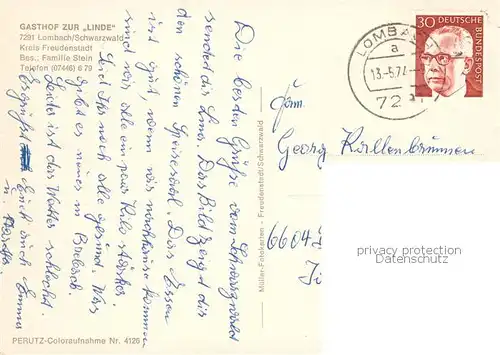 GASTHOF ZUR „LINDE"
7291 Lombach/Schwarzwald
Kreis Freudenstadt
Bes.: Familie Stein
Telefon (07446) 6 79
Die besten Grüße vom Schwarzwald
sendet dir Oma. Das Bild zeigt dir
den schönen Speisesaal. Das Essen
ist gut, wenn wir nachhause kommen
sind wir alle ein paar Kilo stärker.
Seid Ihr noch alle gesund. Was
gibt es neues in
Leider ist das Wetter schlecht.
Es grüßt Euch auch Emma
u.
PERUTZ-Coloraufnahme Nr. 4126
Müller-Fotokarten - Freudenstadt/Schwarzwald
30 DEUTSCHE BUNDESPOST
LOMBACH
a
13.-5.74.--
72
Fam.
Georg Kallenbrunnen
6604
privacy protection
Datenschutz